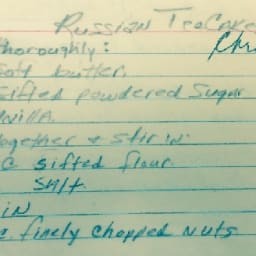 Russian TeaCake
Chr
thoroughly:
soft butter.
sifted powdered sugar
vanilla.
together + stir in:
C. sifted flour
salt.
in
c. finely chopped nuts